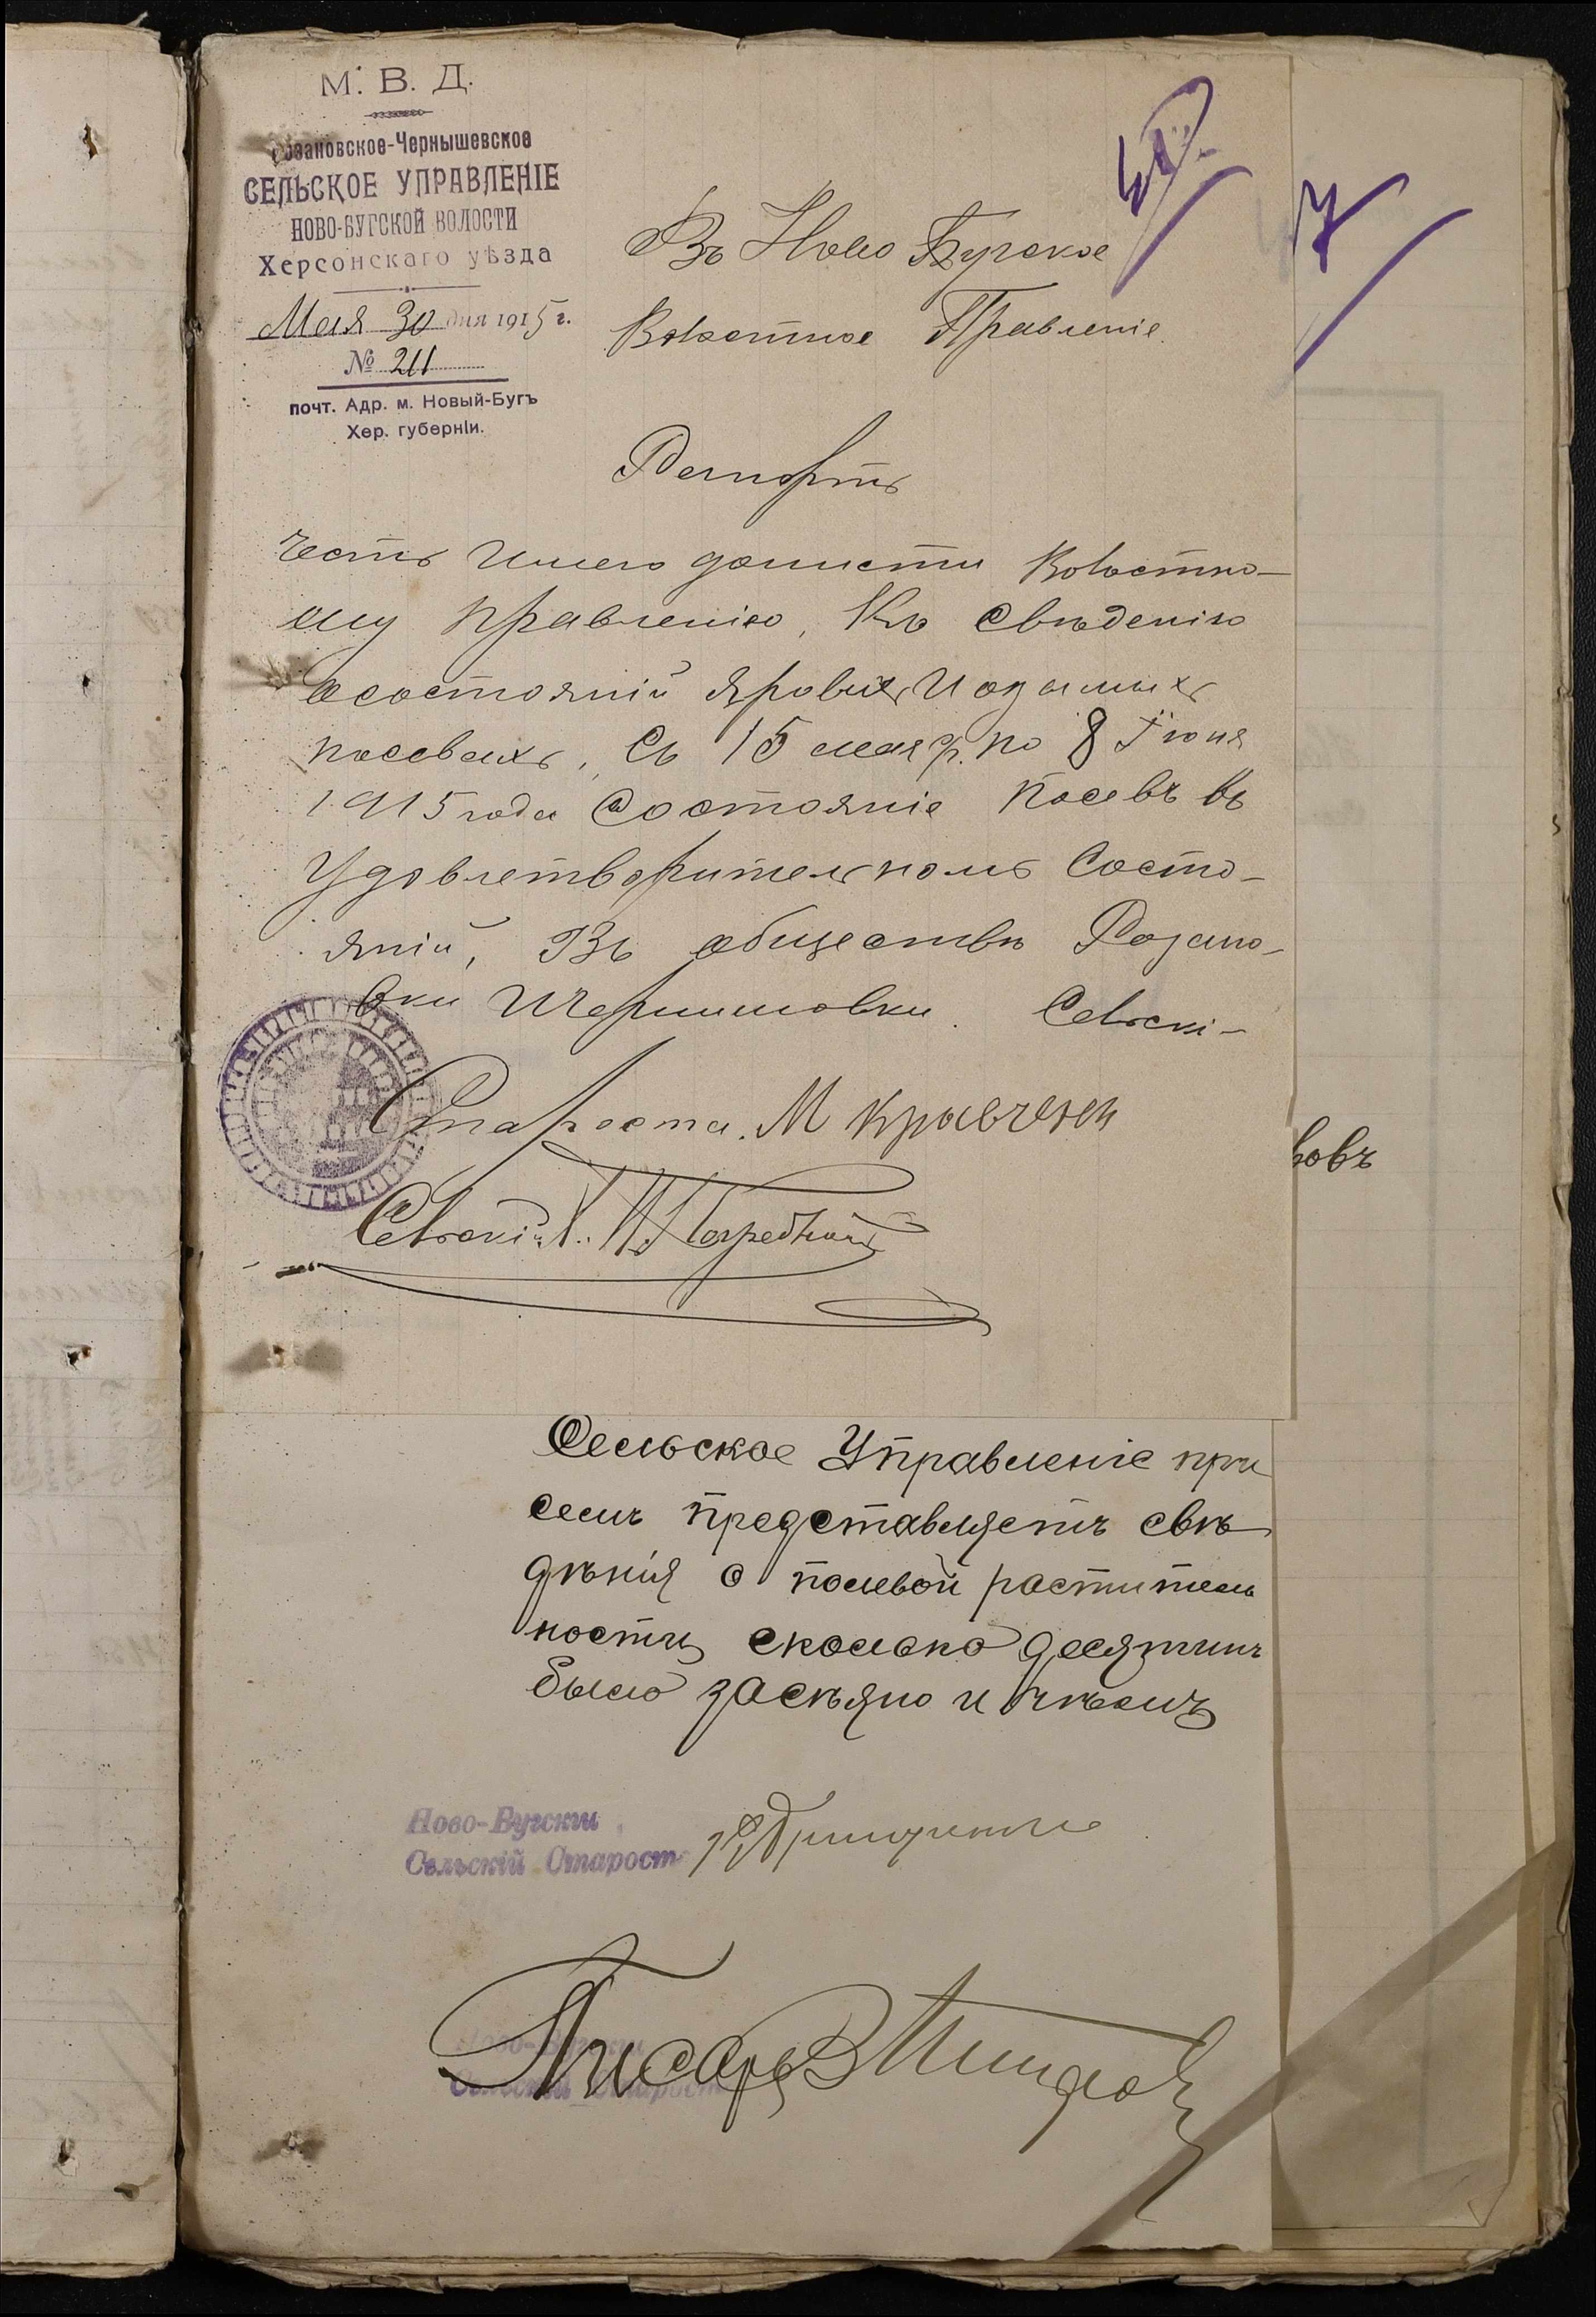 М. В. Д.
Розановское-Чернышевское
СЕЛЬСКОЕ УПРАВЛЕНІЕ
НОВО-БУГСКОЙ ВОЛОСТИ
Херсонскаго уѣзда
Мая 30 дня 1915 г.
№ 211
почт. Адр. м. Новый-Бугъ
Хер. губерніи.
Въ Ново Бугское
Волостное Правленіе
Рапортъ
Честь Имею донисти Волостно-
му правленію, Къ свѣденію
осостояній яровых Иозимых
посевахъ, Съ 15 мая по 8 Іюня
1915 года Состояніе посевъ въ
Удовлетворительномъ Состо-
яній, Въ обществѣ Розано-
вки ИЧернишовки. Сельскі-
Староста. М Кравченк
Сельскій
7
ковъ
Сельское Управленіе при
семъ представляетъ свѣ
дѣнія о полевой раститель
ности сколько десятинъ
было засѣяно и чѣмъ
Ново-Бугскій
Сельскій Старост
Писарь